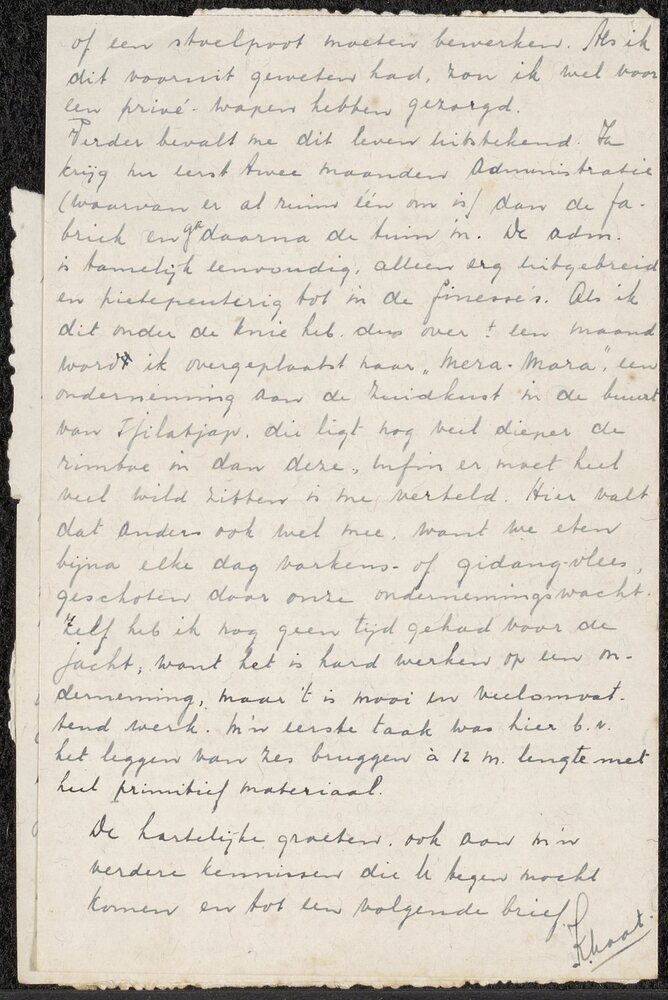 of een stoelpoot moeten bewerken. Als ik
dit vooruit geweten had, zou ik wel voor
een privé-wapen hebben gezorgd.
Verder bevalt me dit leven uitstekend. Ik
krijg nu eerst twee maanden administratie
(waarvan er al ruim één om is) dan de fa-
briek en ga daarna de tuin in. De adm.
is tamelijk eenvoudig, alleen erg uitgebreid
en pietepeuterig tot in de finesse's. Als ik
dit onder de knie heb, dus over ± een maand
word ik overgeplaatst naar "Mera-Mara", een
onderneming aan de Zuidkust in de buurt
van Tjilatjap, die ligt nog veel dieper de
rimboe in dan deze, enfin er moet heel
veel wild zitten is me verteld. Hier valt
dat anders ook wel mee, want we eten
bijna elke dag varkens- of gidang-vlees,
geschoten door onze ondernemingswacht.
Zelf heb ik nog geen tijd gehad voor de
jacht, want het is hard werken op een on-
derneming, maar 't is mooi en veelomvat-
tend werk. M'n eerste taak was hier b.v.
het leggen van zes bruggen à 12 m. lengte met
heel primitief materiaal.
De hartelijke groeten, ook aan m'n
verdere kennissen die U tegen mocht
komen en tot een volgende brief.